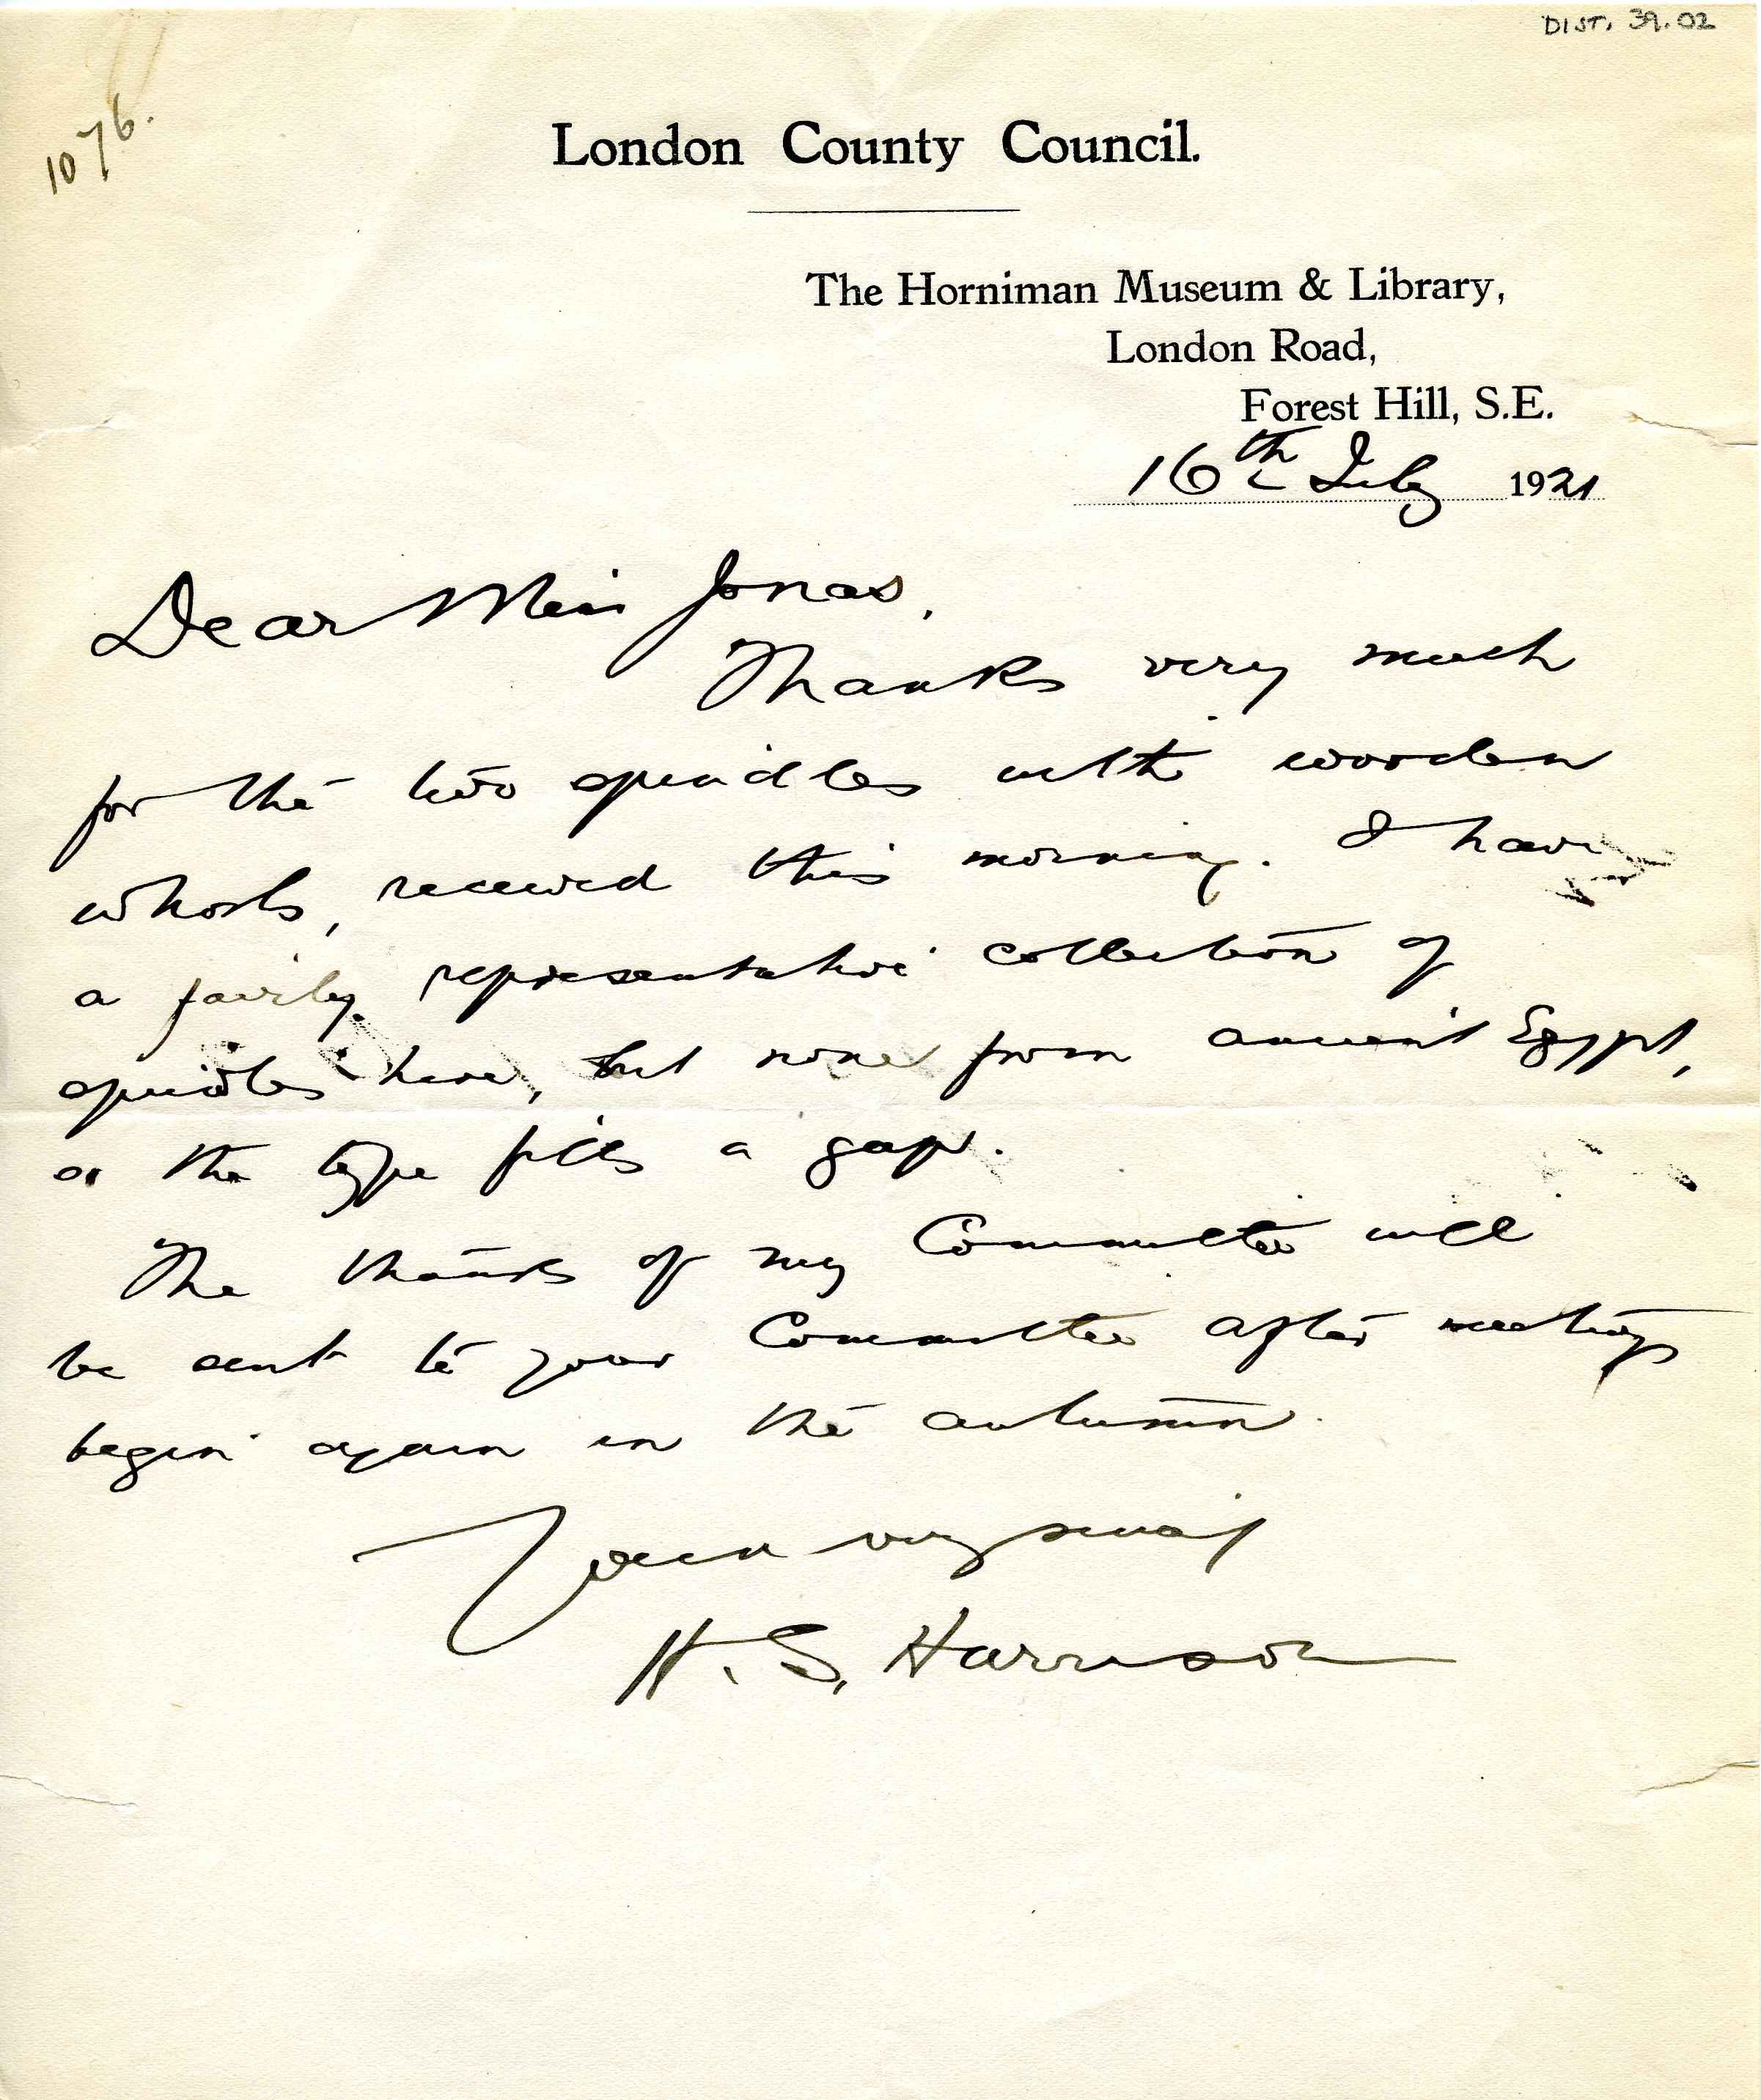 DIST. 39.02
1076.
London County Council.
The Horniman Museum & Library,
London Road,
Forest Hill, S.E.
16th July 1921
Dear Miss Jonas,
Thanks very much
for the two spindles with wooden
whorls, received this morning. I have
a fairly representative collection of
spindles here, but none from ancient Egypt,
so the type fills a gap.
The thanks of my Committee will
be sent to your Committee after meetings
begin again in the autumn.
Yours very sincerely
H. S. Harrison